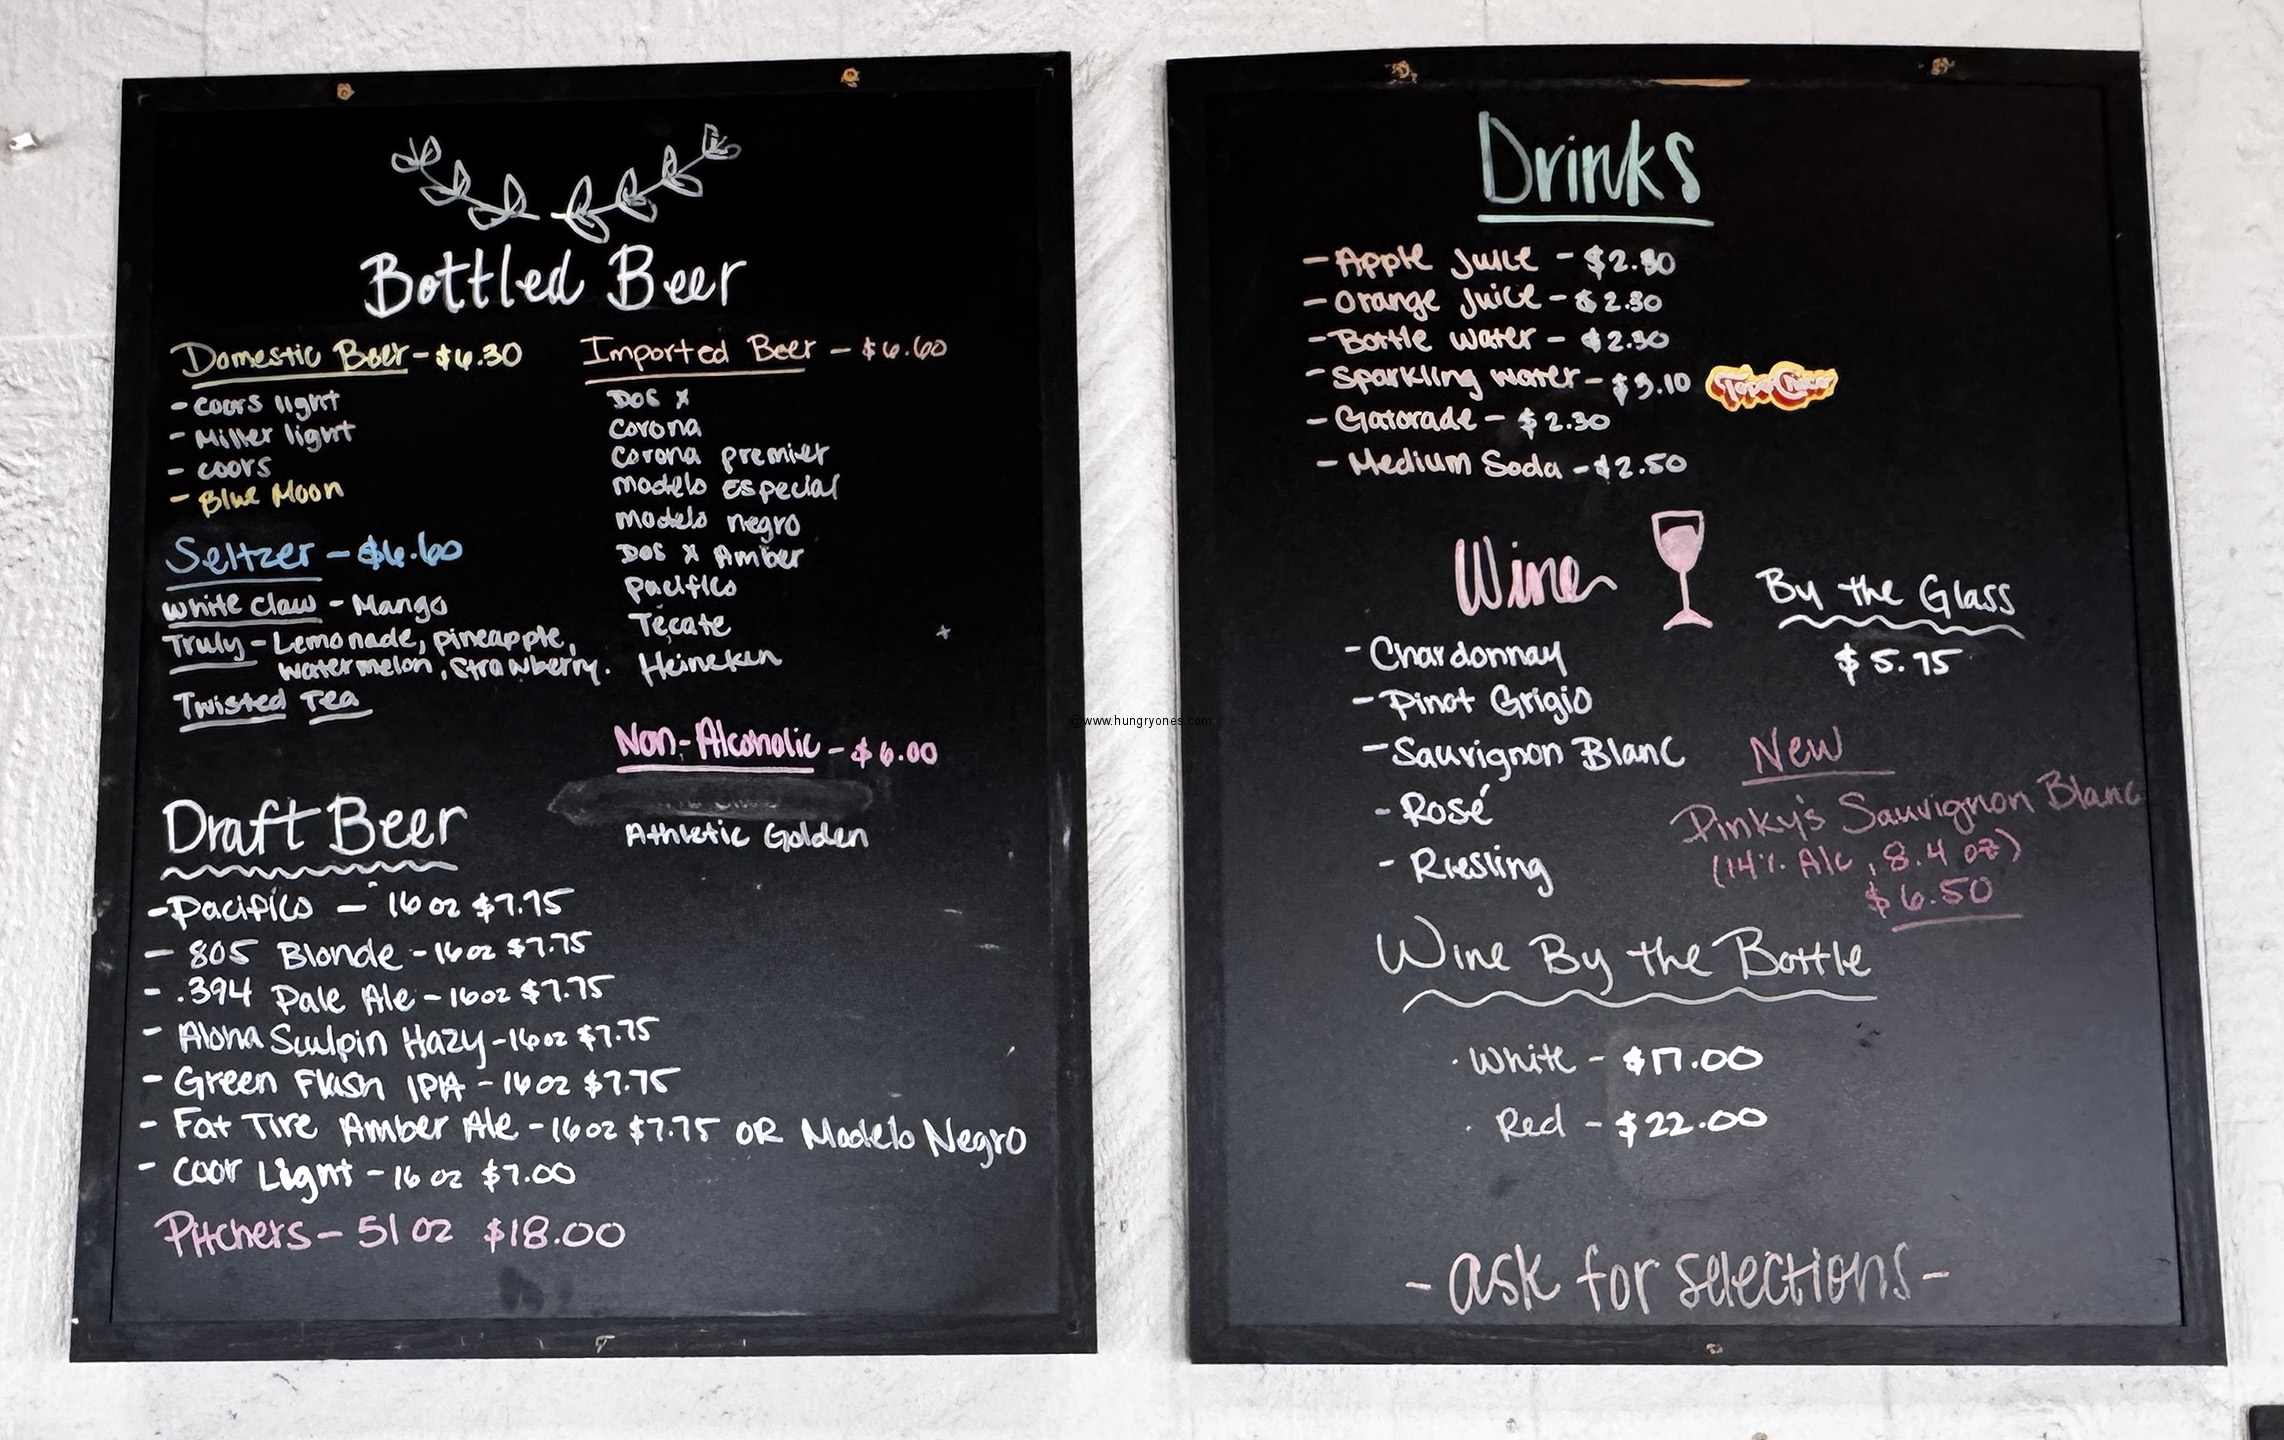 Bottled Beer
Domestic Beer - $6.30
- Coors light
- Miller light
- Coors
- Blue Moon
Seltzer - $6.60
White Claw - Mango
Truly - Lemonade, pineapple,
watermelon, Strawberry.
Twisted Tea
Imported Beer - $6.60
Dos X
Corona
Corona premier
Modelo Especial
Modelo negro
Dos X Amber
Pacifico
Tecate
Heineken
Non-Alcoholic - $6.00
Athletic Golden
Draft Beer
- Pacifico - 16 oz $7.75
- 805 Blonde - 16oz $7.75
- .394 Pale Ale - 16oz $7.75
- Aloha Sculpin Hazy - 16oz $7.75
- Green Flash IPA - 16oz $7.75
- Fat Tire Amber Ale - 16oz $7.75 OR Modelo Negro
- Coor Light - 16 oz $7.00
Pitchers - 51 oz $18.00
@www.hungryones.com
Drinks
- Apple Juice - $2.30
- Orange Juice - $2.30
- Bottle water - $2.30
- Sparkling water - $3.10 Topo Chico
- Gatorade - $2.30
- Medium Soda - $2.50
Wine
By the Glass
$5.75
- Chardonnay
- Pinot Grigio
- Sauvignon Blanc
- Rosé
- Riesling
New
Pinky's Sauvignon Blanc
(14% Alc, 8.4 oz)
$6.50
Wine By the Bottle
· White - $17.00
· Red - $22.00
- ask for selections -